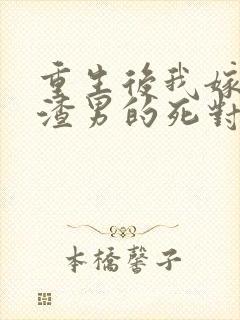 重生後我嫁
渣男的死對
本橋馨子